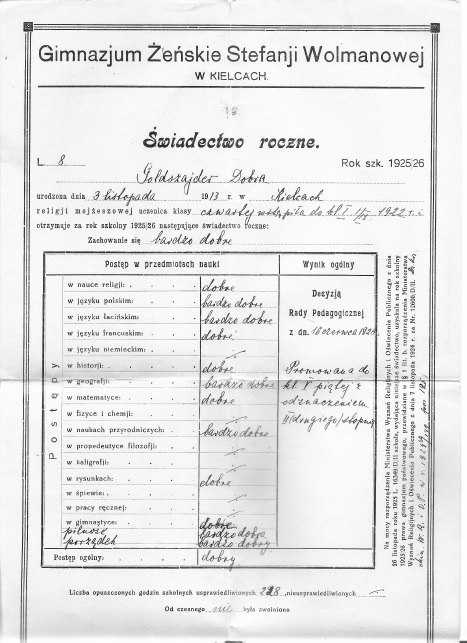 Gimnazjum Żeńskie Stefanji Wolmanowej
W KIELCACH.
Świadectwo roczne.
L. 8 Rok szk. 1925/26
Goldszajder Dobra
urodzona dnia 3 listopada 1913 r. w Kielcach
religji mojżeszowej uczenica klasy czwartej wstąpiła do kl. I 1/IX 1922 r. i
otrzymuje za rok szkolny 1925/26 następujące świadectwo roczne:
Zachowanie się bardzo dobre
Postęp w przedmiotach nauki
Wynik ogólny
Postępy
w nauce religji: dobre
w języku polskim: bardzo dobre
w języku łacińskim: bardzo dobre
w języku francuskim: dobre
w języku niemieckim:
w historji: dobre
w geografji: bardzo dobre
w matematyce: dobre
w fizyce i chemji:
w naukach przyrodniczych: bardzo dobre
w propedeutyce filozofji:
w kaligrafji:
w rysunkach: dobre
w śpiewie:
w pracy ręcznej:
w gimnastyce: dobre
pilność bardzo dobra
porządek bardzo dobry
Postęp ogólny: dobry
Decyzją
Rady Pedagogicznej
z dn. 16 czerwca 192
Promowana do
kl. V piątej z
odznaczeniem
II (drugiego) stopnia
Na mocy rozporządzenia Ministerstwa Wyznań Religijnych i Oświecenia Publicznego z dnia
26 listopada roku 1925 L. 16349/D/II szkoła, wydająca niniejsze świadectwo, uzyskała na rok szkolny
1925/26 prawa gimnazjum państwowego, przewidziane w § 1 lit. b. rozporządzenia Ministerstwa
Wyznań Religijnych i Oświecenia Publicznego z dnia 7 listopada 1924 r. za Nr. 12660/D/II.
Liczba opuszczonych godzin szkolnych usprawiedliwionych 228, nieusprawiedliwionych
Od czesnego nie była zwolniona